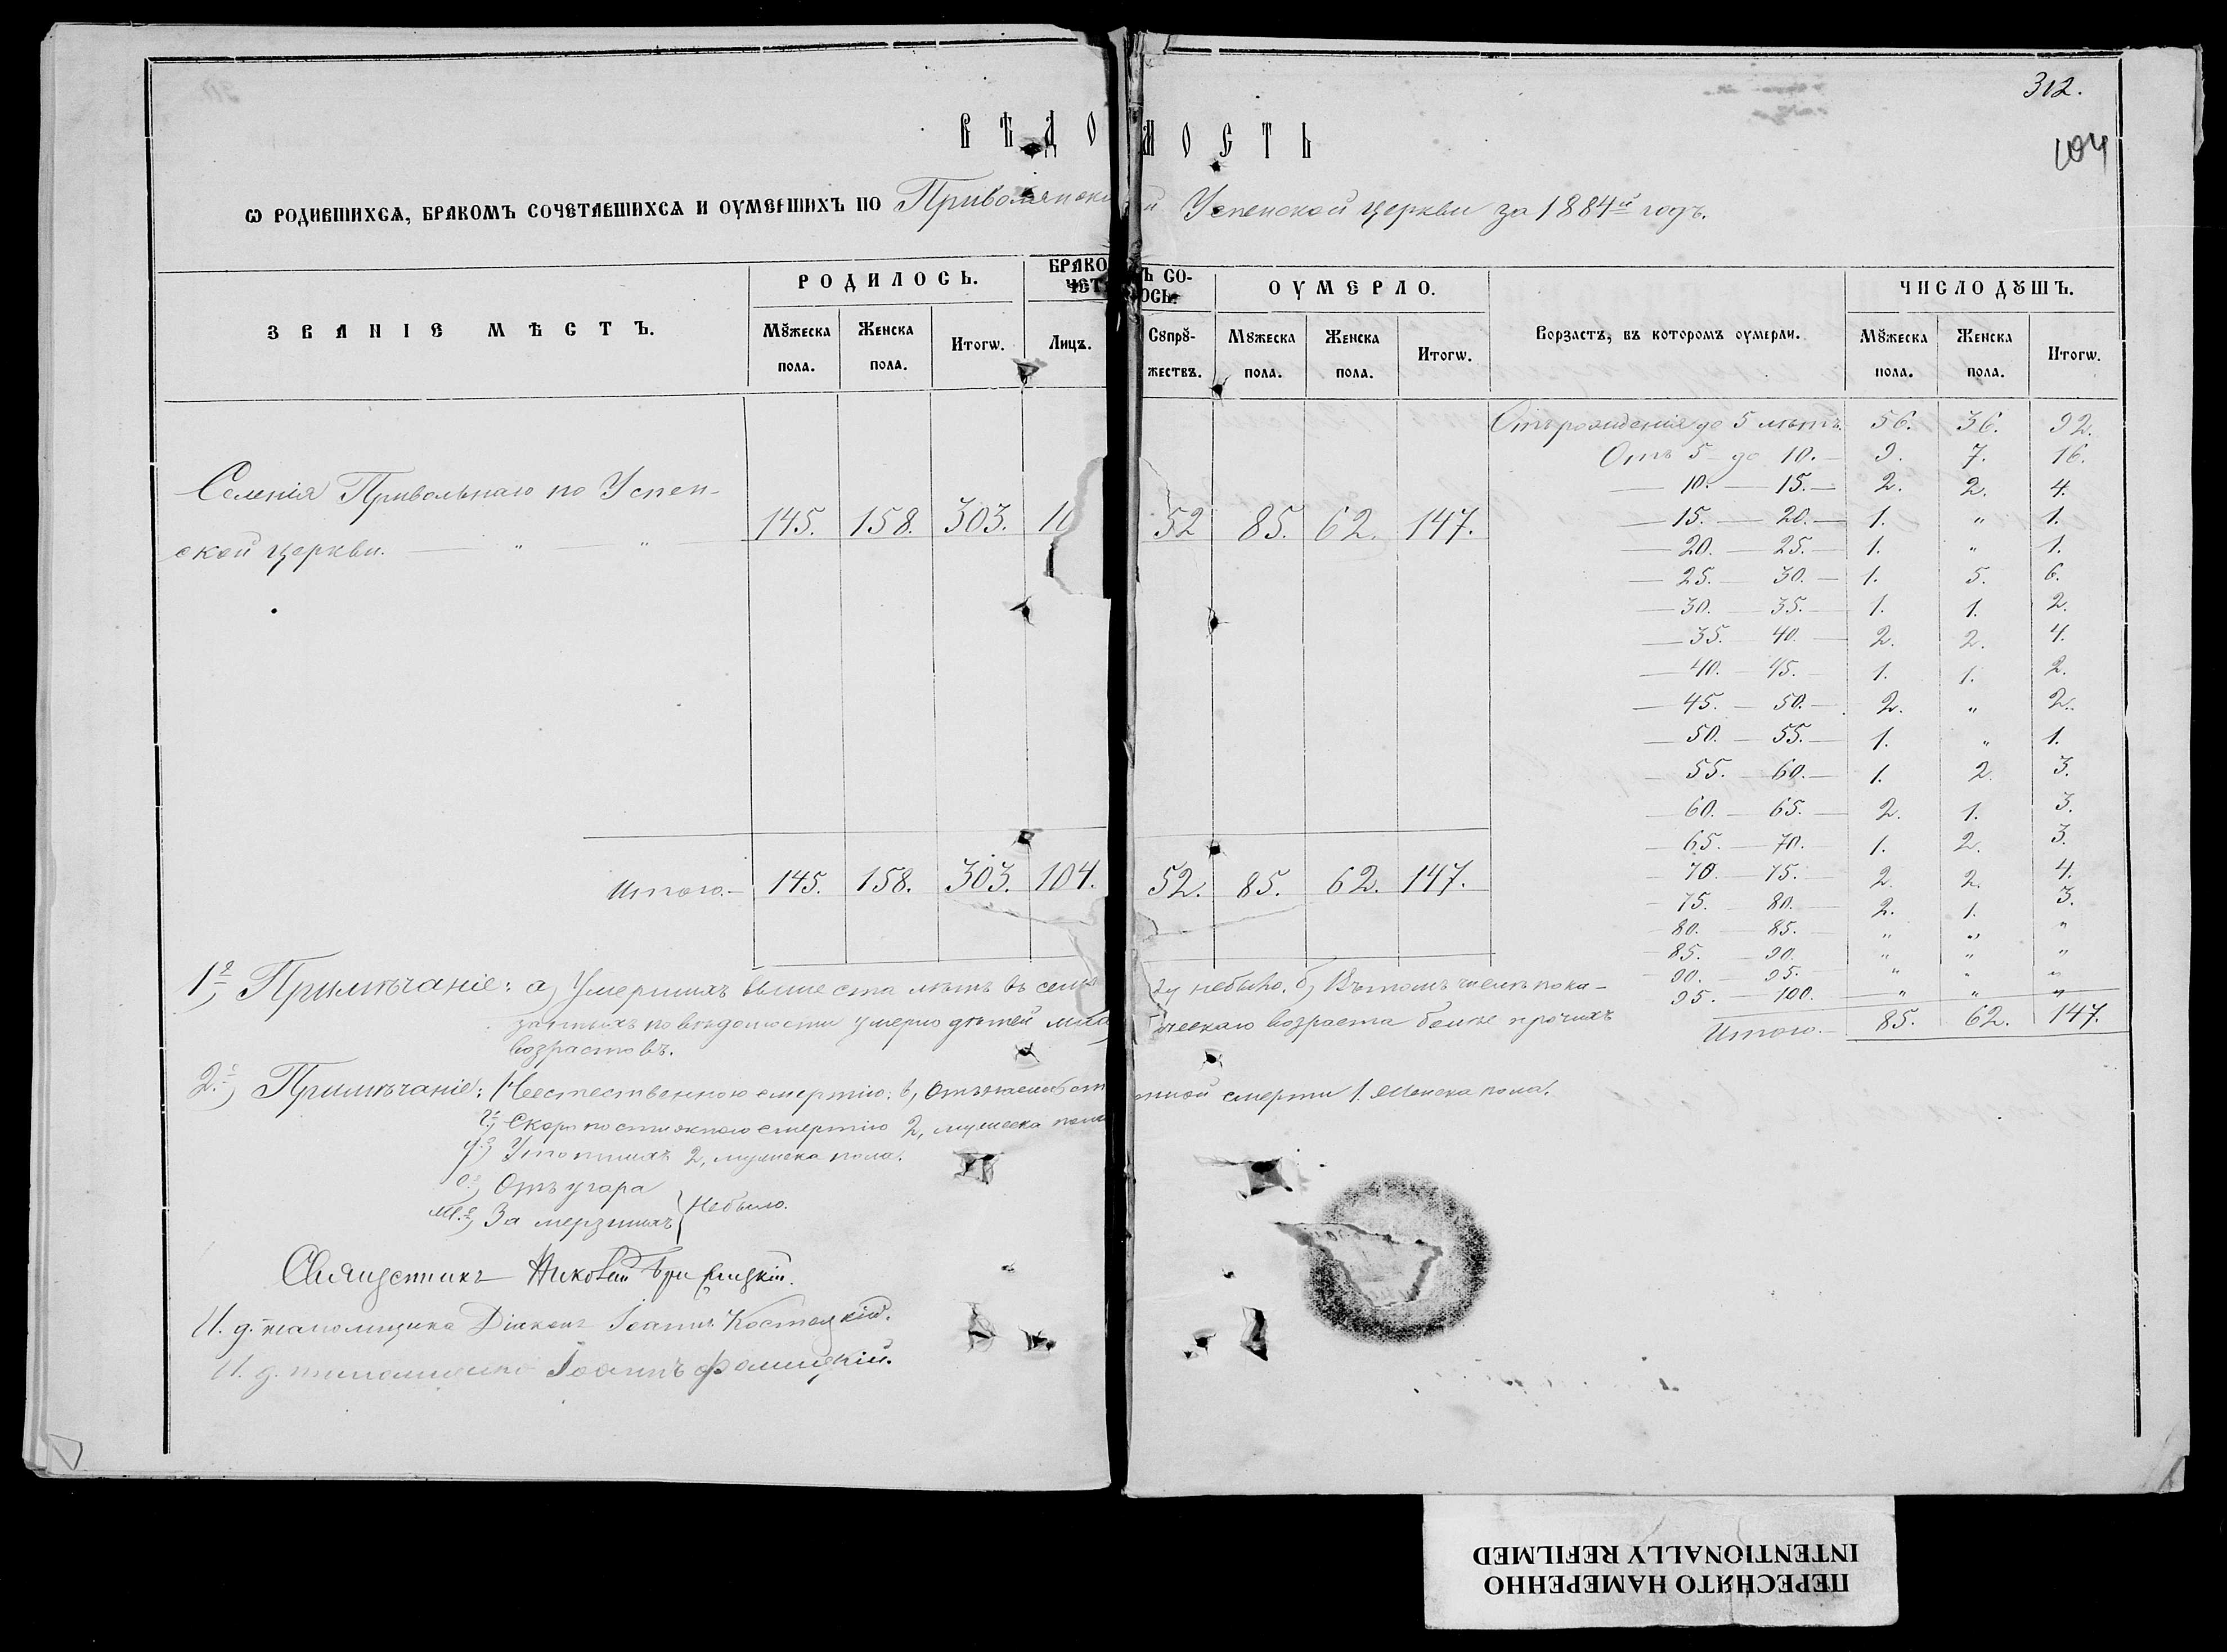 312.
104
ВѢДОМОСТЬ
Ѡ РОДИВШИХСѦ, БРАКОМЪ СОЧЕТАВШИХСѦ И ОУМЕРШИХЪ ПО Привольнской Успенской церкви за 1884й годъ.
ЗВАНІЕ МѢСТЪ. РОДИЛОСЬ. БРАКОМЪ СОЧЕТ ОСЬ. ОУМЕРЛО. Ворзастъ, въ которомъ оумерли. ЧИСЛО ДꙊШЪ.
Мꙋжеска пола. Женска пола. Итогѡ. Лицъ. Сꙋпрꙋжествъ. Мꙋжеска пола. Женска пола. Итогѡ. Мꙋжеска пола. Женска пола. Итогѡ.
Селенія Привольнаго по Успен-
ской церкви. — „ — „ — 145. 158. 303. 10 52 85. 62. 147.
Итого.— 145. 158. 303. 104. 52. 85. 62. 147.
Отъ рожденія до 5 лѣтъ. 56. 36. 92.
Отъ 5 до 10.— 9. 7. 16.
— 10. — 15.— 2. 2. 4.
— 15. — 20.— 1. „ 1.
— 20. — 25.— 1. „ 1.
— 25. — 30.— 1. 5. 6.
— 30. — 35.— 1. 1. 2.
— 35. — 40.— 2. 2. 4.
— 40. — 45.— 1. 1. 2.
— 45. — 50.— 2. „ 2.
— 50. — 55.— 1. „ 1.
— 55. — 60.— 1. 2. 3.
— 60. — 65.— 2. 1. 3.
— 65. — 70. 1. 2. 3.
— 70. — 75.— 2. 2. 4.
— 75. — 80.— 2. 1. 3.
— 80. — 85.— „ „ „
— 85. — 90. „ „ „
— 90. — 95. „ „ „
95. — 100. — „ „ „
Итого.— 85. 62. 147.
1е, Примѣчаніе: а, Умершихъ выше ста лѣтъ въ семъ году небыло. б, Въ томъ числѣ пока-
занныхъ по вѣдомости умерло дѣтей младенческаго возраста болѣе прочихъ
возрастовъ.
2е, Примѣчаніе: Неестественною смертію: в, Отъ смерти 1. женска пола.
г, Скоропостижною смертію 2, мужеска пола
Утопшихъ 2, мужска пола.
Отъ угара
Замерзшихъ } Небыло.
Священникъ Николай
И. д. псаломщика Діаконъ Іоаннъ Костецкій.
И. д. псаломщика Іоаннъ Фомицкій.
ПЕРЕСНЯТО НАМЕРЕННО
INTENTIONALLY REFILMED